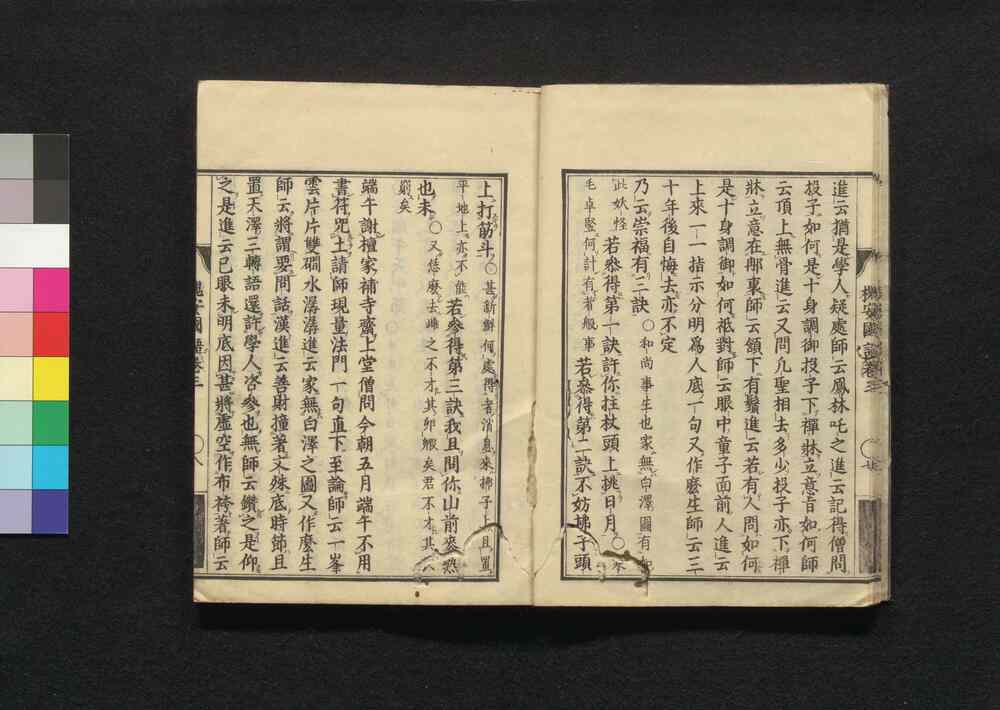 進云猶是學人疑處師云鳳林吒之進云記得僧問
投子如何是十身調御投子下禪牀立意旨如何師
云頂上無骨進云又問凡聖相去多少投子亦下禪
牀立意在那裏師云頷下有鬚進云若有人問如何
是十身調御如何祗對師云眼中童子面前人進云
上來一一指示分明爲人底一句又作麼生師云三
十年後自悔去亦不定
乃云崇福有三訣○和尚事生也家無白澤圖有
此妖怪若參得第一訣許你拄杖頭上挑日月○
毛卓竪何計有者般事若參得第二訣不妨拂子頭
槐安國語卷三
上打筋斗○甚新鮮何處得者消息來拂子上且置
平地上亦不能若參得第三訣我且問你山前麥熟
也未○又恁麼去雖之不才其卵毈矣君不才其
窮矣
端午謝檀家補寺齋上堂僧問今朝五月端午不用
書符咒土請師現量法門一句直下至論師云一峯
雲片片雙磵水潺潺進云家無白澤之圖又作麼生
師云將謂要問話漢進云善財撞著文殊底時節且
置天澤三轉語還許學人咨參也無師云鑽之是仰
之是進云已眼未明底因甚將虛空作布袴著師云
槐安國語卷三